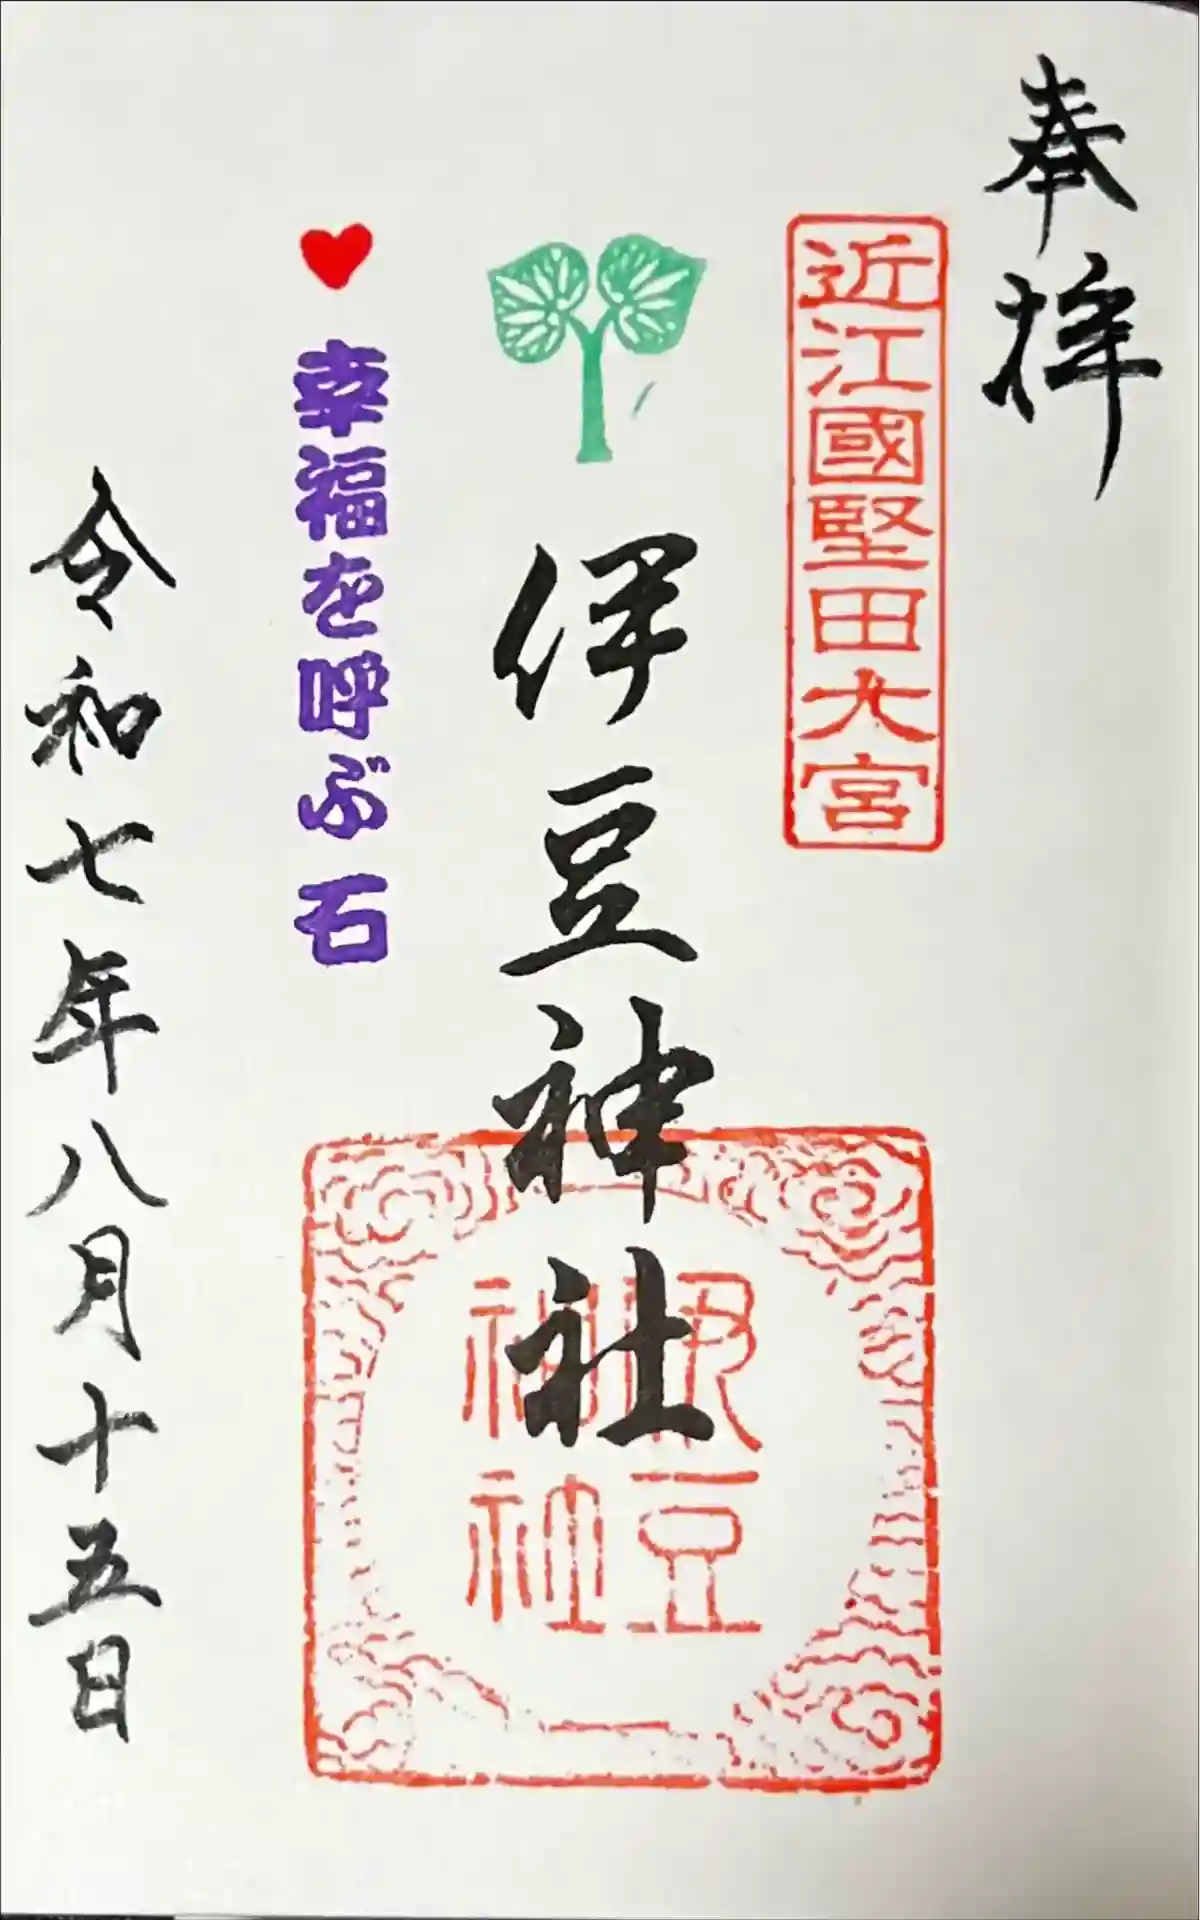 奉拝
近江國堅田大宮
伊豆神社
伊豆
神社
幸福を呼ぶ石
令和七年八月十五日